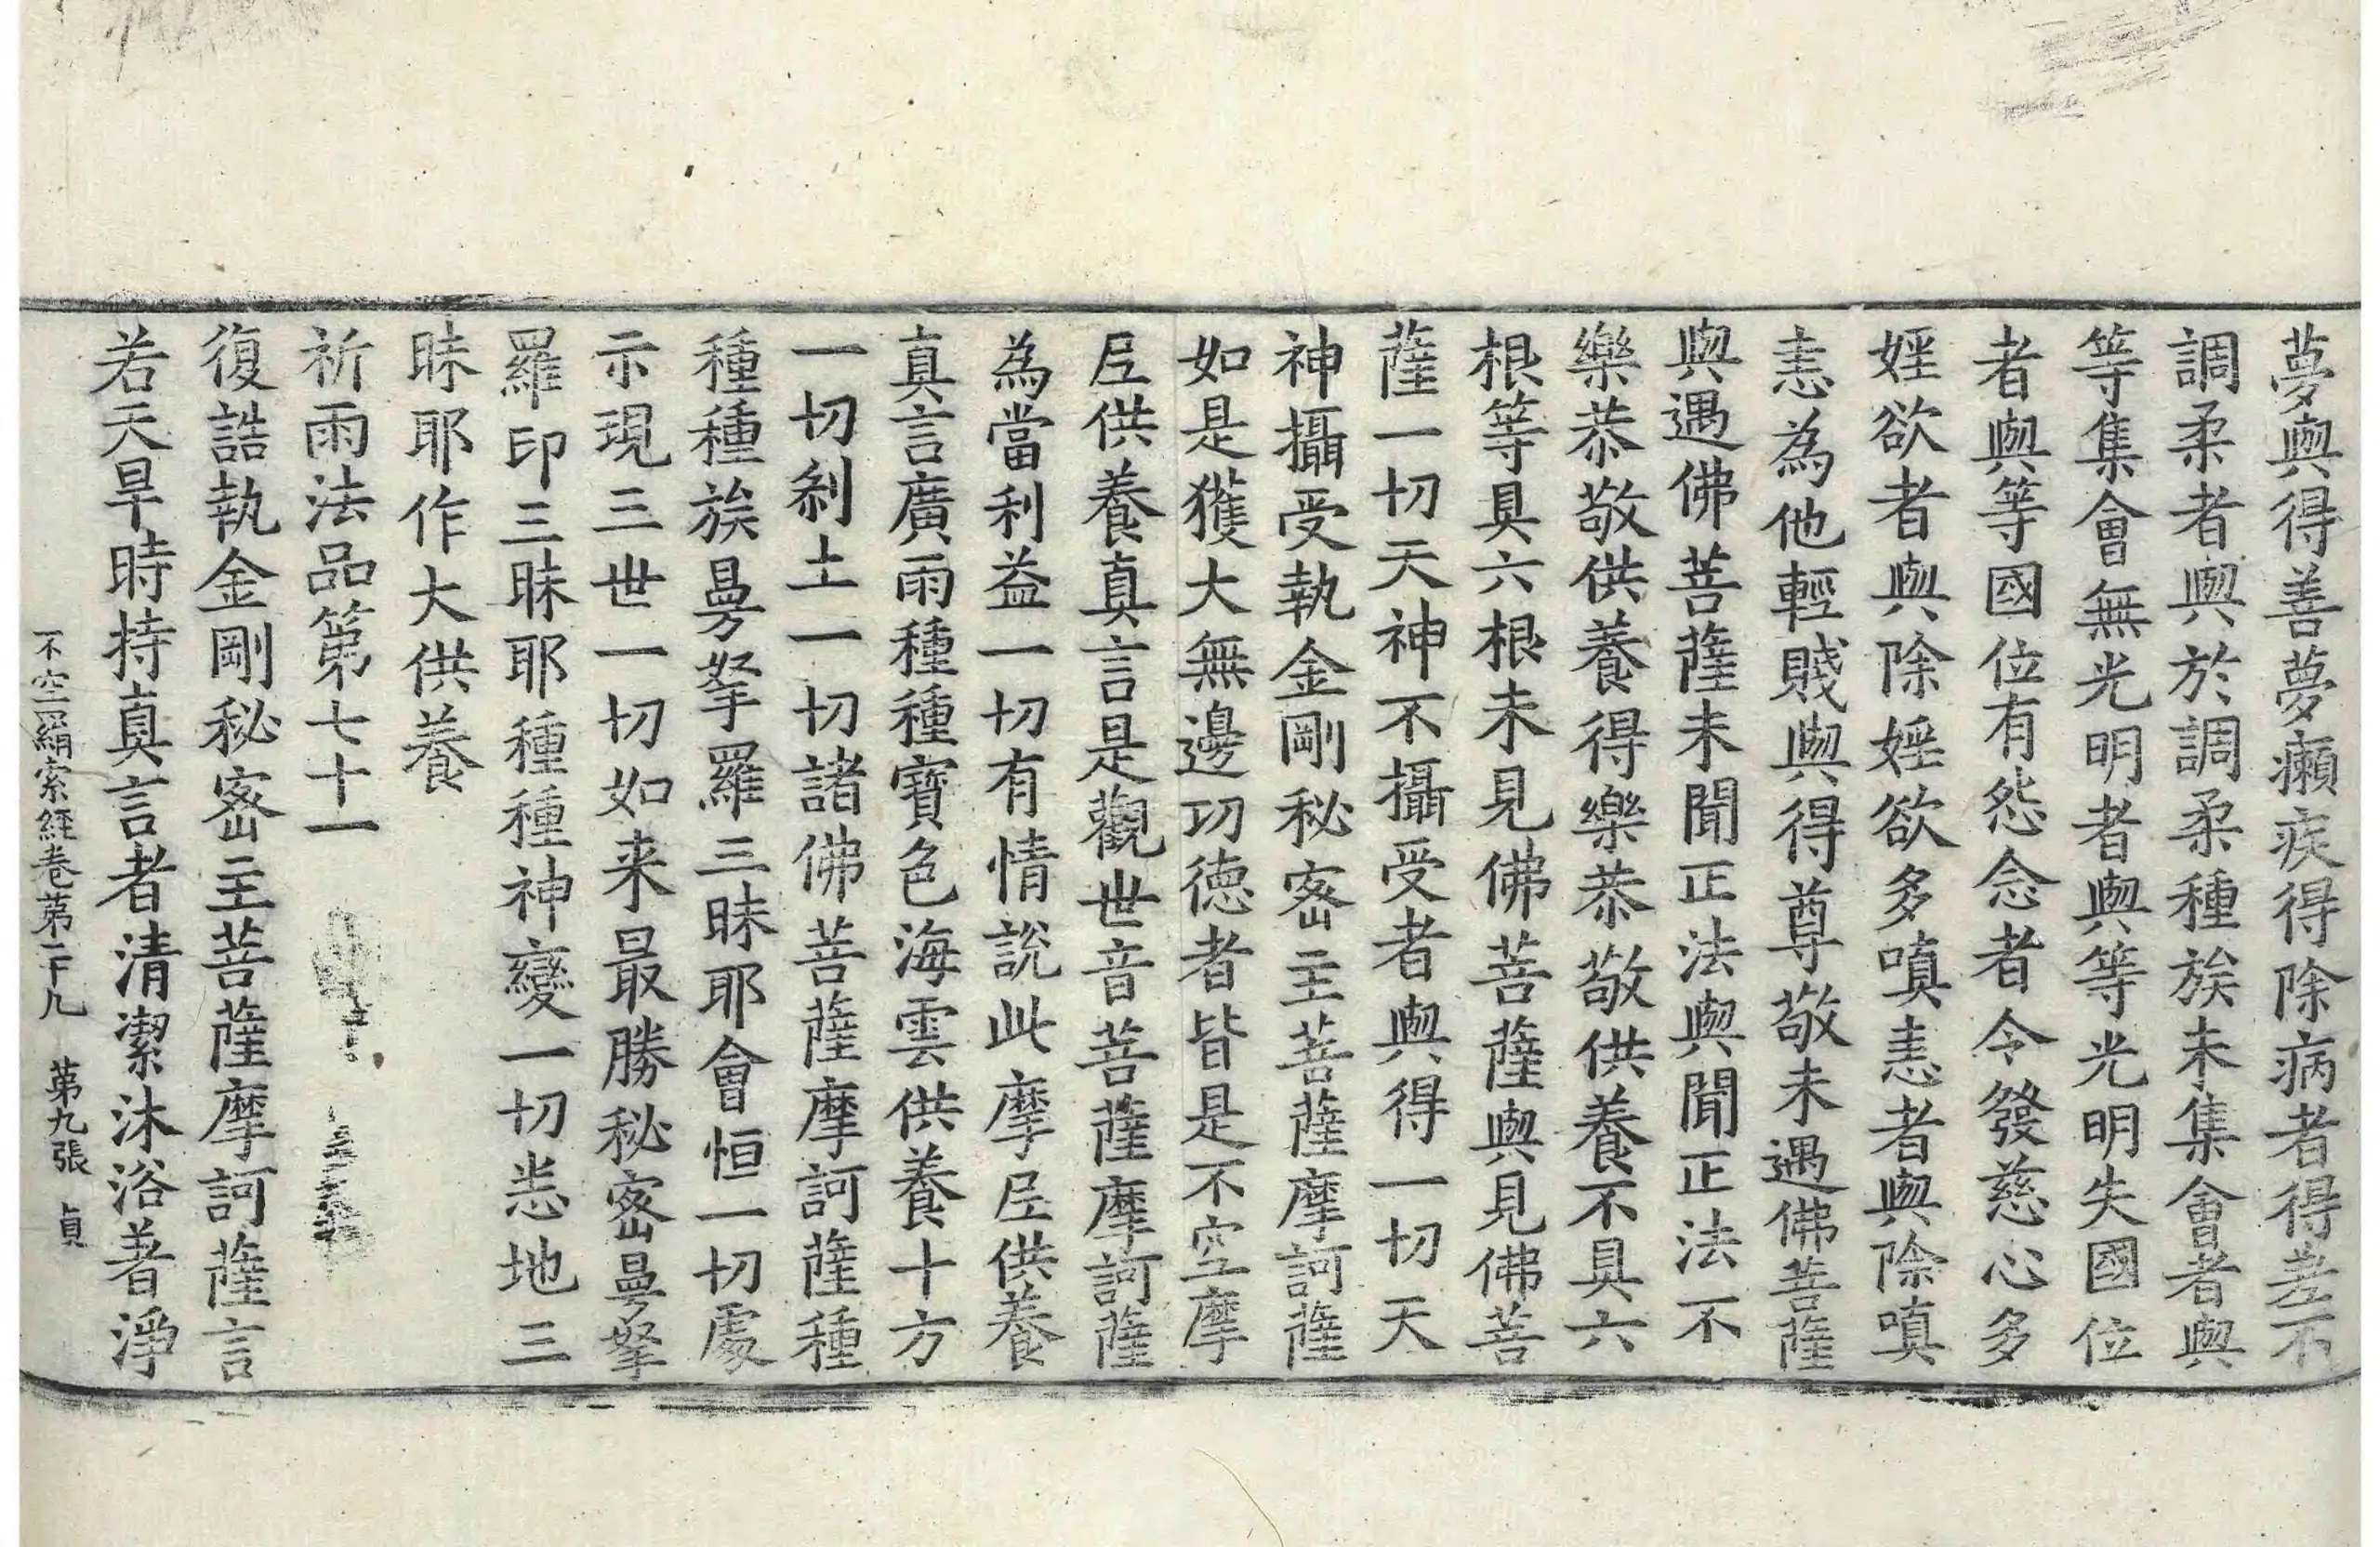 夢與得善夢癩疾得除病者得差不
調柔者與於調柔種族未集會者與
等集會無光明者與等光明失國位
者與等國位有怨念者令發慈心多
婬欲者與除婬欲多嗔恚者與除嗔
恚為他輕賤與得尊敬未遇佛菩薩
與遇佛菩薩未聞正法與聞正法不
樂恭敬供養得樂恭敬供養不具六
根等具六根未見佛菩薩與見佛菩
薩一切天神不攝受者與得一切天
神攝受執金剛秘密主菩薩摩訶薩
如是獲大無邊功德者皆是不空摩
尼供養真言是觀世音菩薩摩訶薩
為當利益一切有情說此摩尼供養
真言廣雨種種寶色海雲供養十方
一切剎土一切諸佛菩薩摩訶薩種
種種族曼拏羅三昧耶會恒一切處
示現三世一切如来最勝秘密曼拏
羅印三昧耶種種神變一切悉地三
昧耶作大供養
祈雨法品第七十一
復誥執金剛秘密主菩薩摩訶薩言
若天旱時持真言者清潔沐浴著淨
不空羂索經卷第二十九 第九張 貞